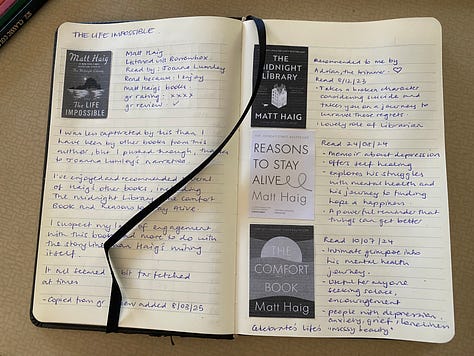 THE LIFE IMPOSSIBLE.
Matt Haig
The LIFE
IMPOSSIBLE
Matt Haig
Listened via Borrowbox.
Read by: Joanna Lumley
Read because: I enjoy
Matt Haig's books
gr rating: xxxx
gr review ✓
I was less captivated by this than I
have been by other books from this
author, but I pushed through, thanks
to Joanna Lumley's narration.
I've enjoyed and recommended several
of Haig's other books, including
The Midnight Library, The Comfort
Book and Reasons to Stay Alive.
I suspect my lack of engagement
with this book had more to do with
the storyline than Haig's writing
itself.
It all seemed a bit far fetched
at times
- Copied from gr review added 8/03/25
THE
MIDNIGHT
LIBRARY
MATT HAIG
Recommended to me by
Adrian, the trainer. ♡
Read 8/12/23
- Takes a broken character
considering suicide and
takes you on a journey to
unravel these regrets
- Lovely role of Librarian
REASONS
TO STAY
ALIVE
Matt Haig
Read 24/08/24
- Memoir about depression
- Offers self healing
- explores his struggles
with mental health and
his journey to finding
hope & happiness
- A powerful reminder that
things can get better
THE
COMFORT
BOOK
Matt Haig
Read 10/07/24
- Intimate glimpse into
his mental health
journey.
- Useful for anyone
seeking solace,
encouragement
- people with depression
anxiety, grief, loneliness
Celebrates life's "messy beauty"